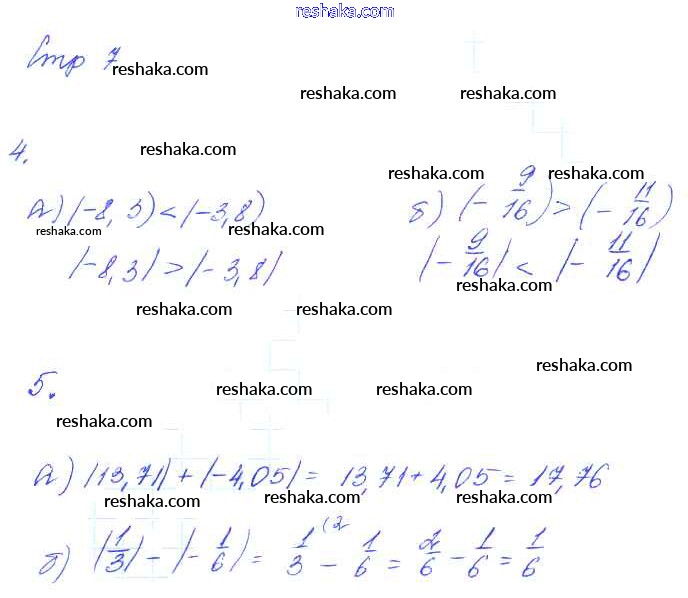 reshaka.com
Стр 7
reshaka.com
reshaka.com reshaka.com
4.
reshaka.com
reshaka.com reshaka.com
а) (-8,3) < (-3,8) б) (- 9/16) > (- 11/16)
reshaka.com reshaka.com
|-8,3| > |-3,8| |- 9/16| < |- 11/16|
reshaka.com
reshaka.com reshaka.com
reshaka.com
5.
reshaka.com reshaka.com
reshaka.com
а) |13,71| + |-4,05| = 13,71 + 4,05 = 17,76
reshaka.com reshaka.com reshaka.com
б) |1/3| - |- 1/6| = 1/3 (2 - 1/6 = 2/6 - 1/6 = 1/6
reshaka.com reshaka.com reshaka.com